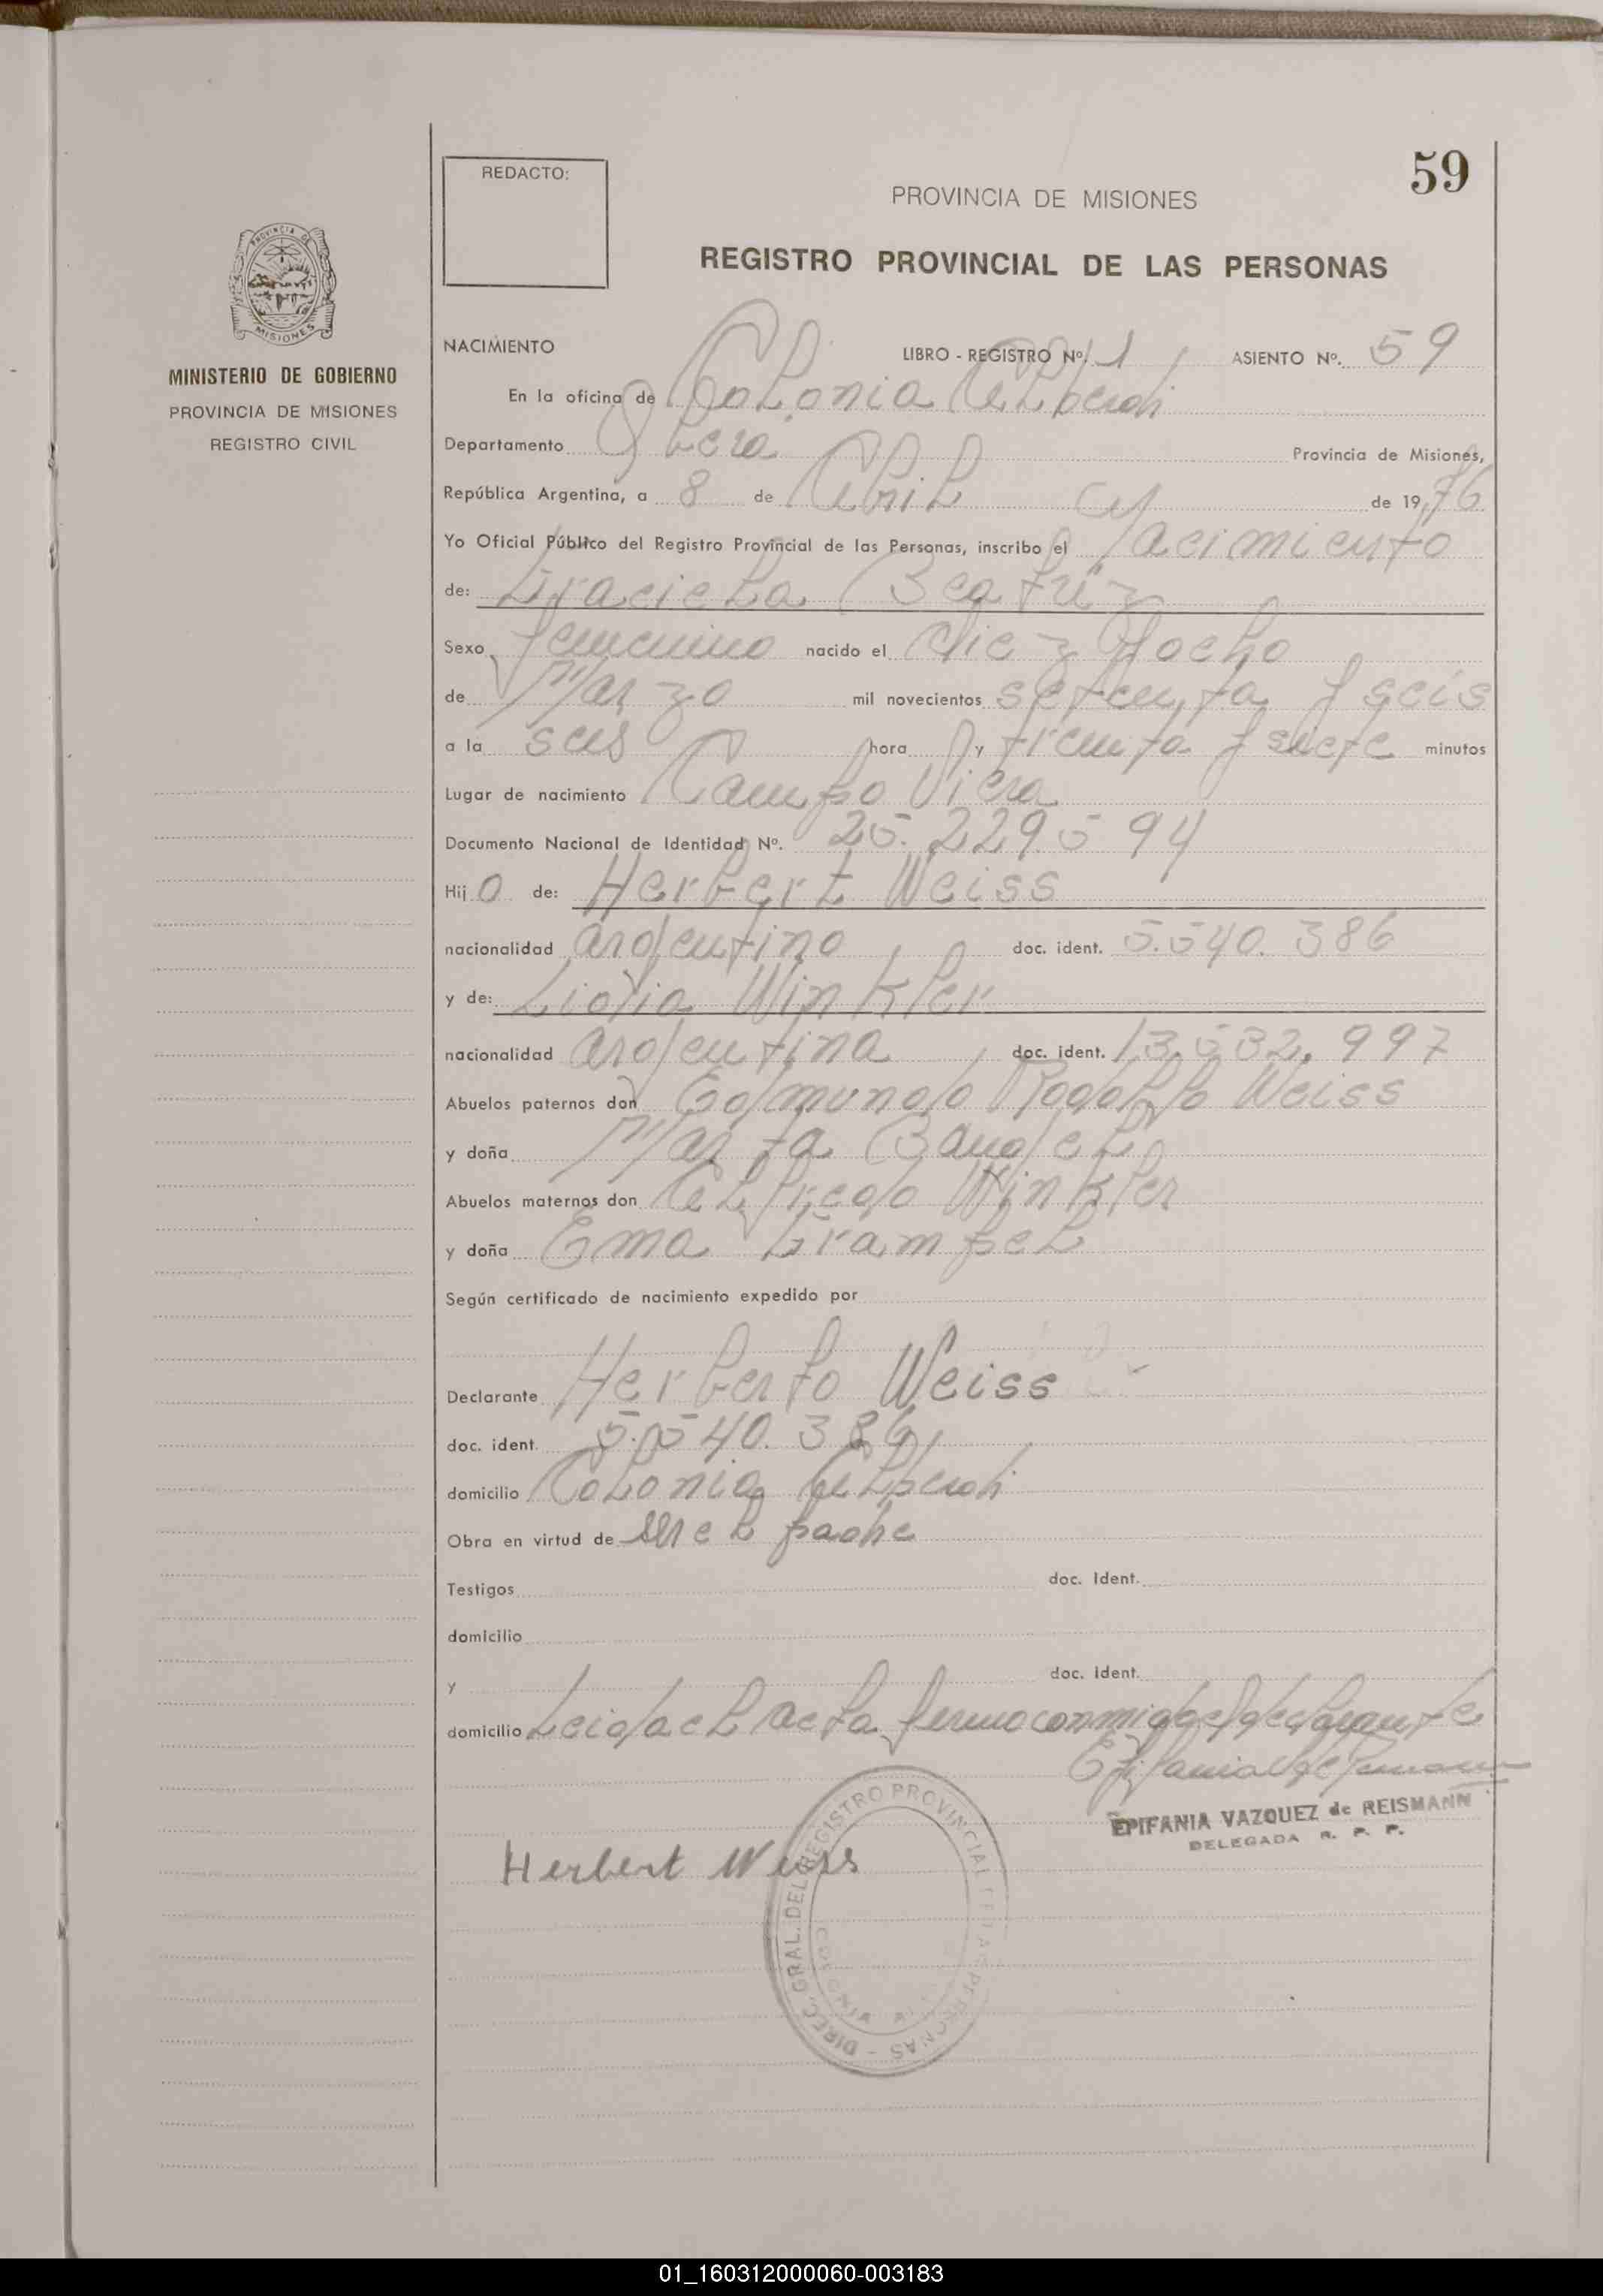 59
REDACTO:
PROVINCIA DE MISIONES
REGISTRO PROVINCIAL DE LAS PERSONAS
PROVINCIA DE MISIONES
MINISTERIO DE GOBIERNO
PROVINCIA DE MISIONES
REGISTRO CIVIL
NACIMIENTO LIBRO - REGISTRO Nº. 1 ASIENTO Nº. 59
En la oficina de Colonia Alberdi
Departamento Obera Provincia de Misiones,
República Argentina, a 8 de Abril de 1976
Yo Oficial Público del Registro Provincial de las Personas, inscribo el Nacimiento
de: Graciela Beatriz
Sexo femenino nacido el diez y ocho
de Marzo mil novecientos setenta y seis
a la seis hora y treinta y siete minutos
Lugar de nacimiento Campo Viera
Documento Nacional de Identidad Nº. 25.229.594
Hijo de: Herbert Weiss
nacionalidad argentino doc. ident. 5.540.386
y de: Lidia Winkler
nacionalidad argentina doc. ident. 13.532.997
Abuelos paternos don Edmundo Rodolfo Weiss
y doña Marta Bangel
Abuelos maternos don Alfredo Winkler
y doña Ema Grampel
Según certificado de nacimiento expedido por
Declarante Herberto Weiss
doc. ident. 5.540.386
domicilio Colonia Alberdi
Obra en virtud de ser el padre
Testigos doc. Ident.
domicilio
y doc. Ident.
domicilio Leida el acta firmo conmigo el declarante
EPIFANIA VAZQUEZ de REISMANN
DELEGADA R. P. P.
Herbert Weiss
DIREC. GRAL. DEL REGISTRO PROVINCIAL DE LAS PERSONAS
01_160312000060-003183